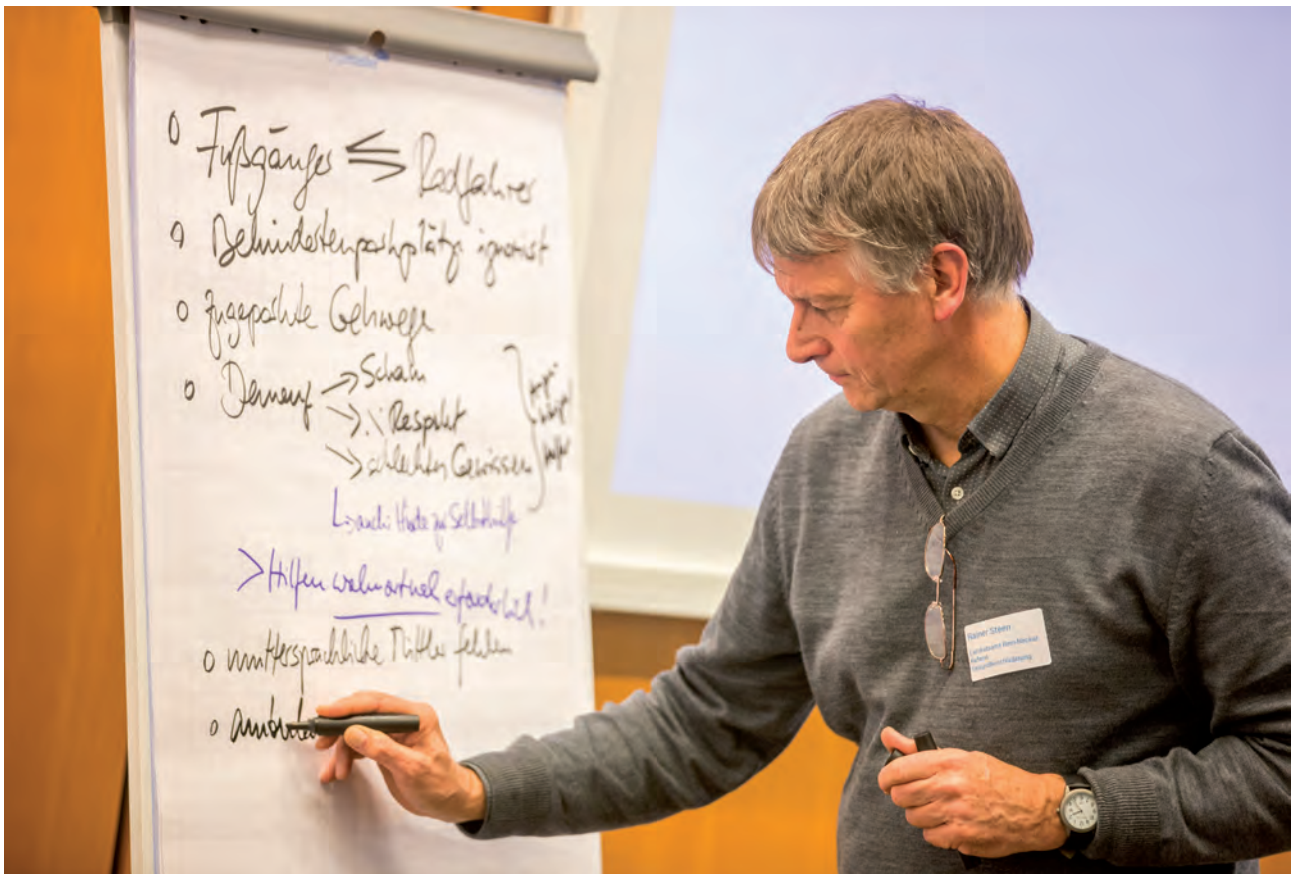 o Fußgänger ⇐⇒ Radfahrer
o Behindertenparkplätze ignoriert
o Zugeparkte Gehwege
o Demenz → Scham
→ ./. Respekt
→ schlechtes Gewissen
↳ auch: Hürde zur Selbsthilfe
> Hilfen wohnortnah erforderlich!
o muttersprachliche Mittler fehlen
o
Rainer Steen
Landratsamt Rhein-Neckar
Referat
Gesundheitsförderung